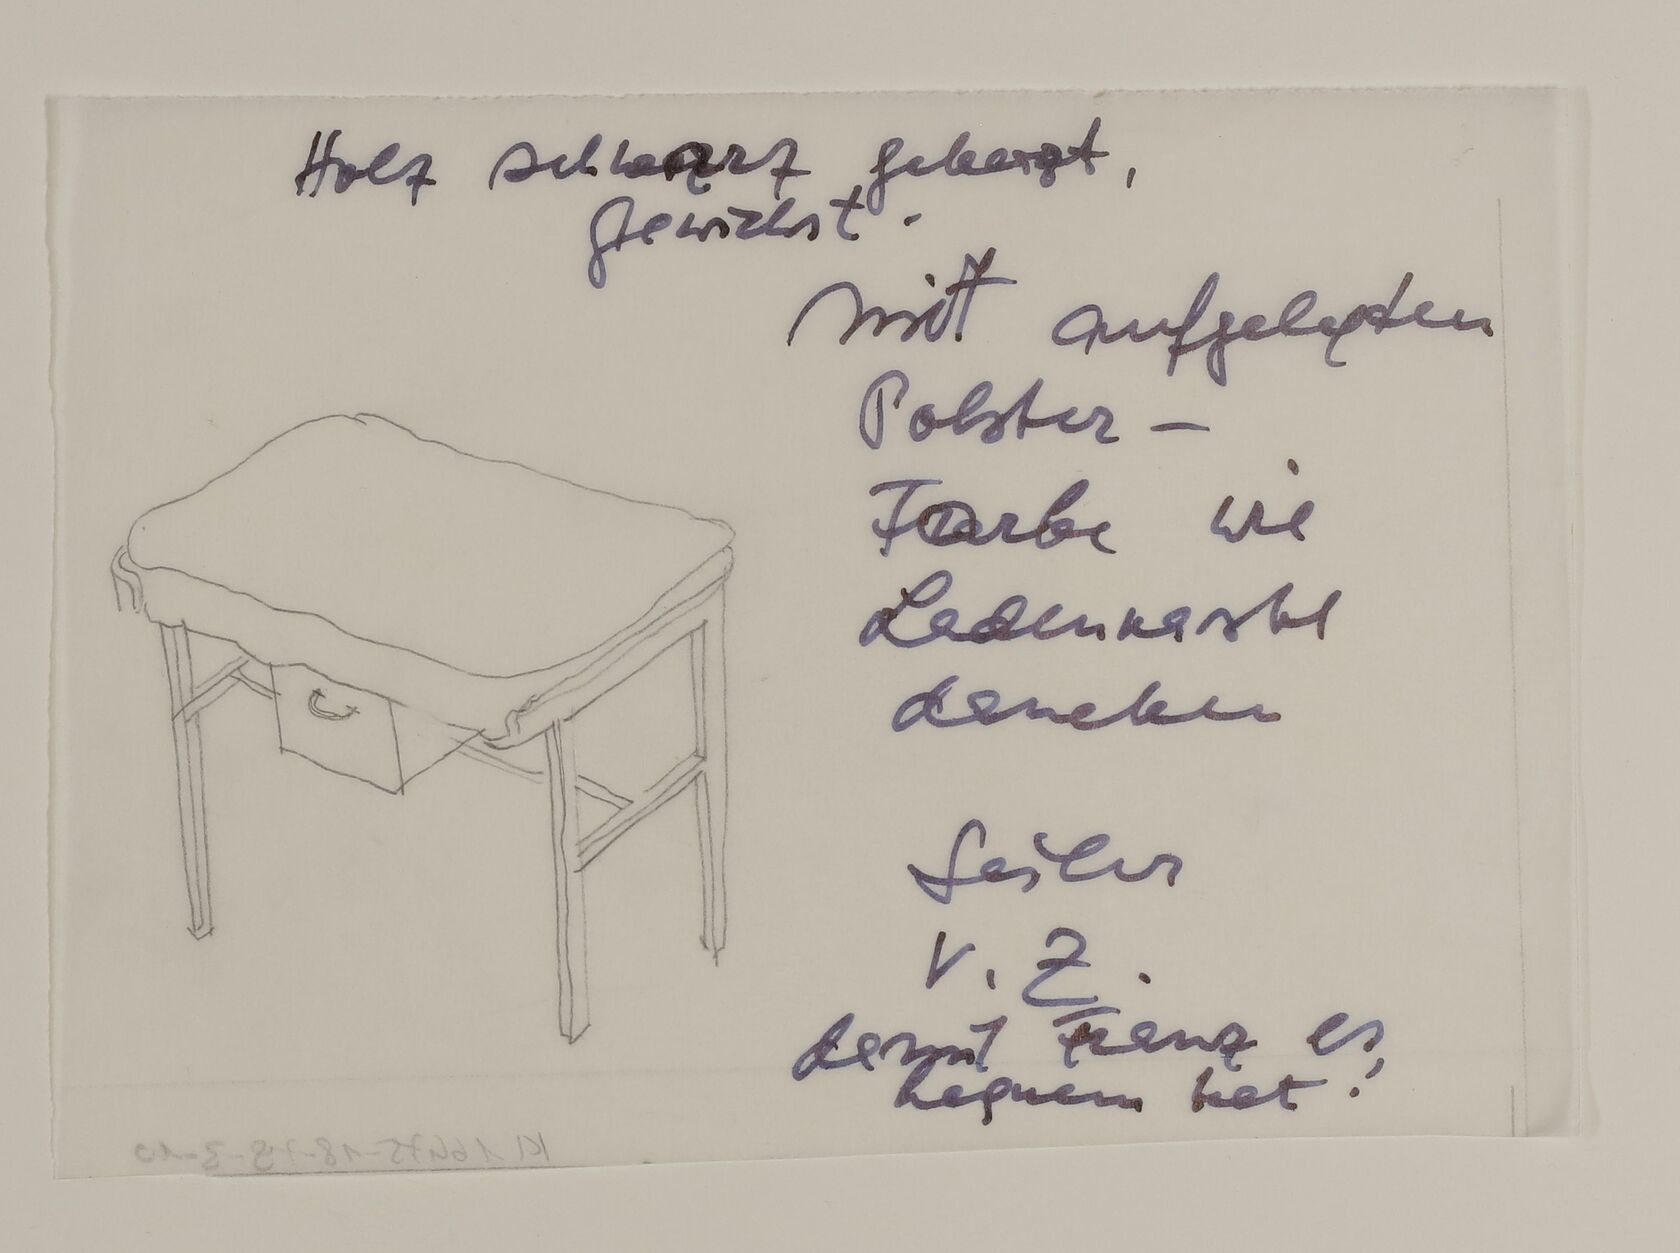 Holz schwarz gebeizt,
gewichst.
mitt aufgelegten
Polster –
Farbe wie
Ladenkastl
daneben
V. Z.
damit Franz es
bequem hat!
Kl 16475-18-78-3-10